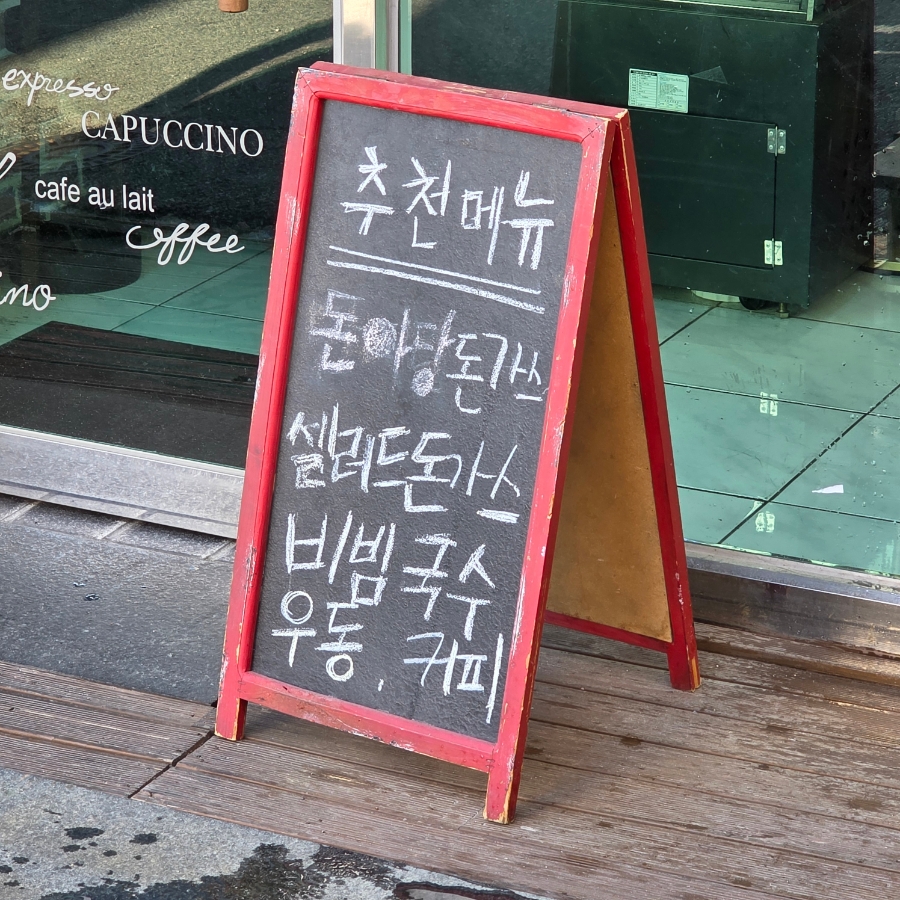 expresso
CAPUCCINO
cafe au lait
coffee
ino
추천메뉴
돈마당돈가스
셀러드돈가스
비빔국수
우동, 커피